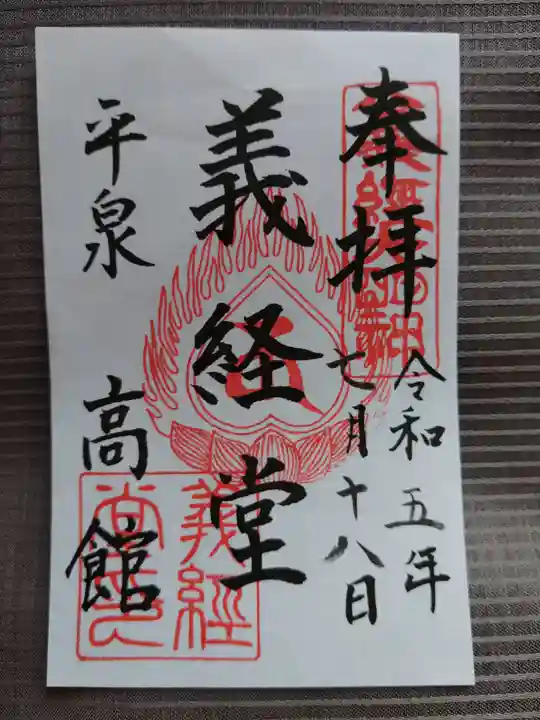 奉拝
令和五年
七月十八日
義経堂
平泉 高館
義經